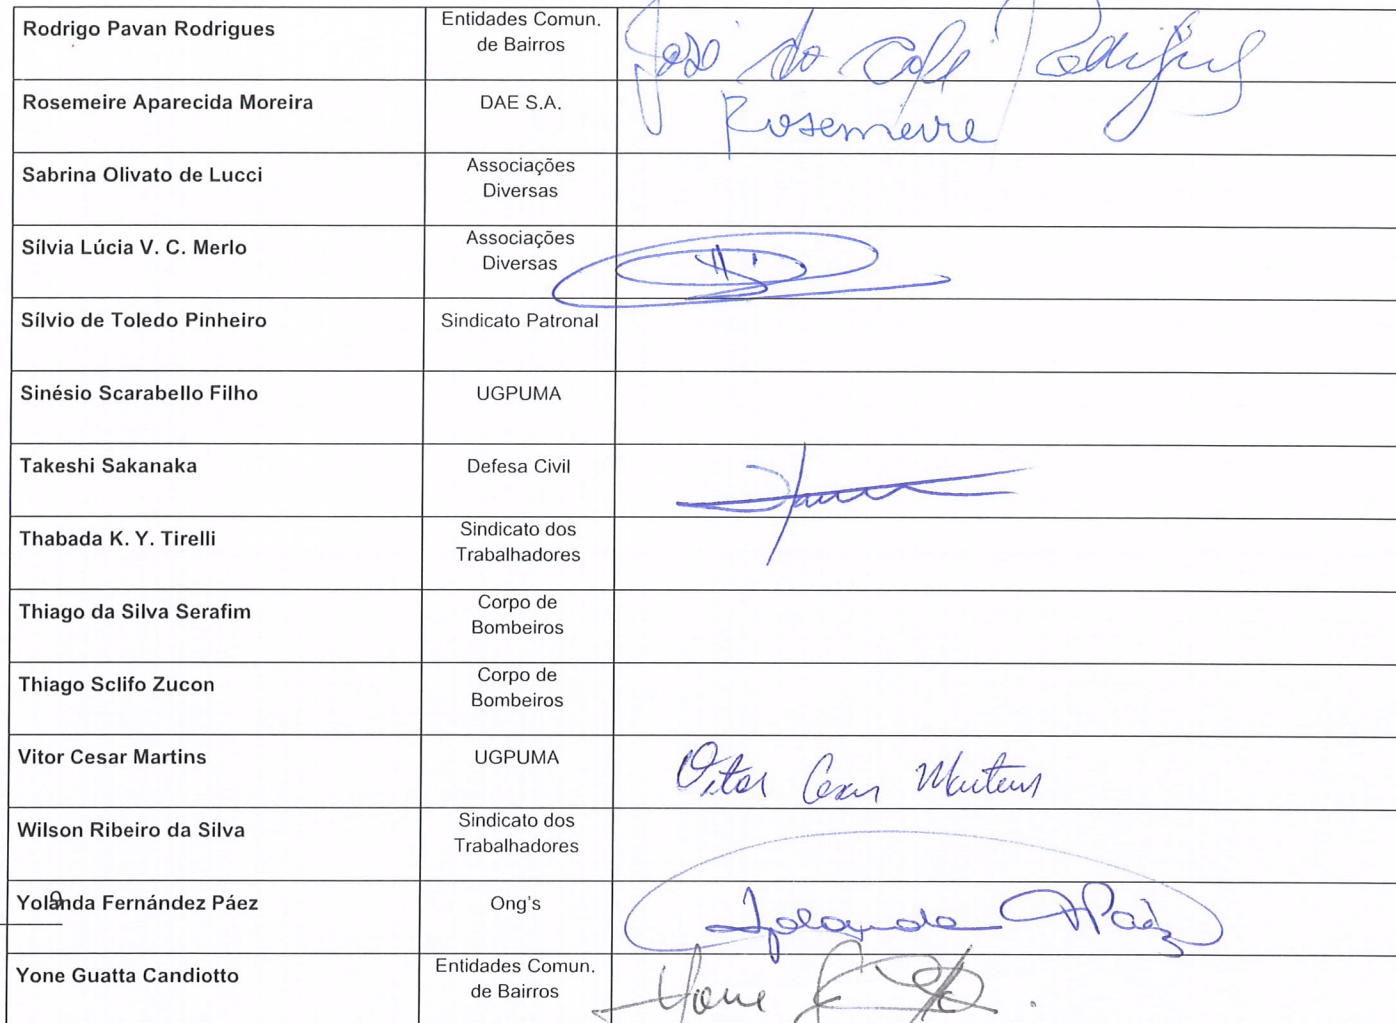 Rodrigo Pavan Rodrigues
Entidades Comun.
de Bairros
José do Café Rodrigues
Rosemeire Aparecida Moreira
DAE S.A.
Rosemeire
Sabrina Olivato de Lucci
Associações
Diversas
Sílvia Lúcia V. C. Merlo
Associações
Diversas
Sílvio de Toledo Pinheiro
Sindicato Patronal
Sinésio Scarabello Filho
UGPUMA
Takeshi Sakanaka
Defesa Civil
Thabada K. Y. Tirelli
Sindicato dos
Trabalhadores
Thiago da Silva Serafim
Corpo de
Bombeiros
Thiago Sclifo Zucon
Corpo de
Bombeiros
Vitor Cesar Martins
UGPUMA
Vitor Cesar Martins
Wilson Ribeiro da Silva
Sindicato dos
Trabalhadores
Yolanda Fernández Páez
9
Ong's
Yolanda F Páez
Yone Guatta Candiotto
Entidades Comun.
de Bairros
Yone